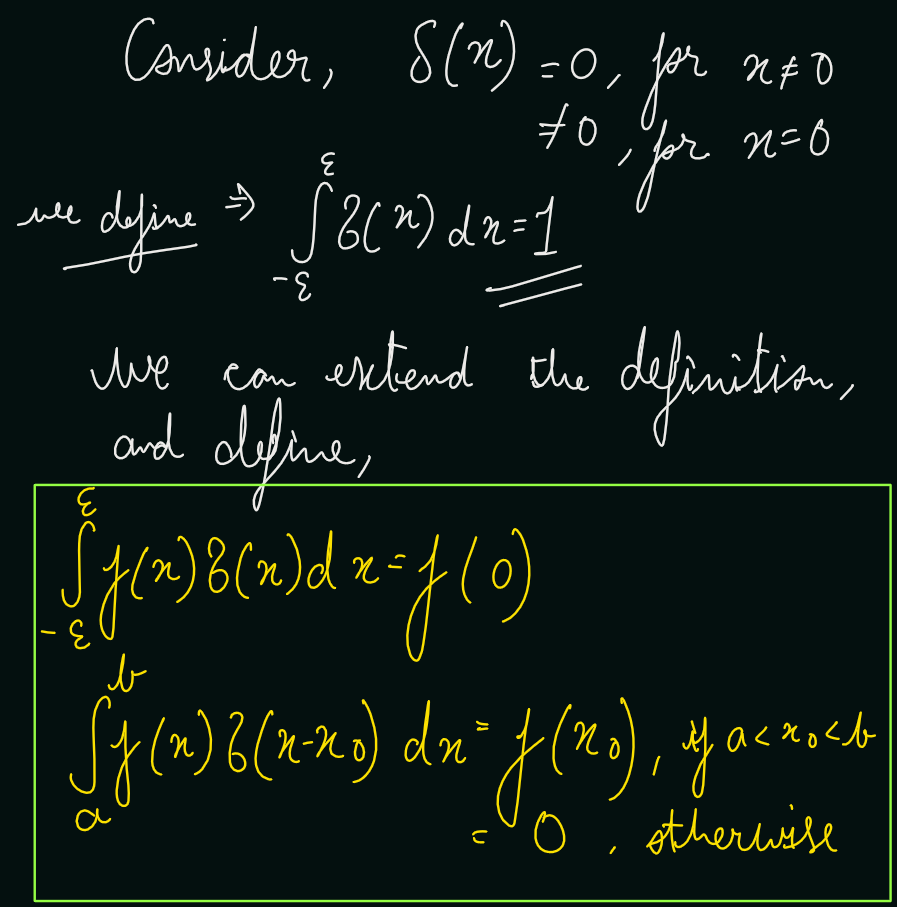 Consider, δ(x) = 0, for x ≠ 0
≠ 0, for x = 0
we define ⇒ ∫_{-ε}^{ε} δ(x) dx = 1
We can extend the definition,
and define,
∫_{-ε}^{ε} f(x) δ(x) dx = f(0)
∫_{a}^{b} f(x) δ(x-x₀) dx = f(x₀), if a < x₀ < b
= 0, otherwise